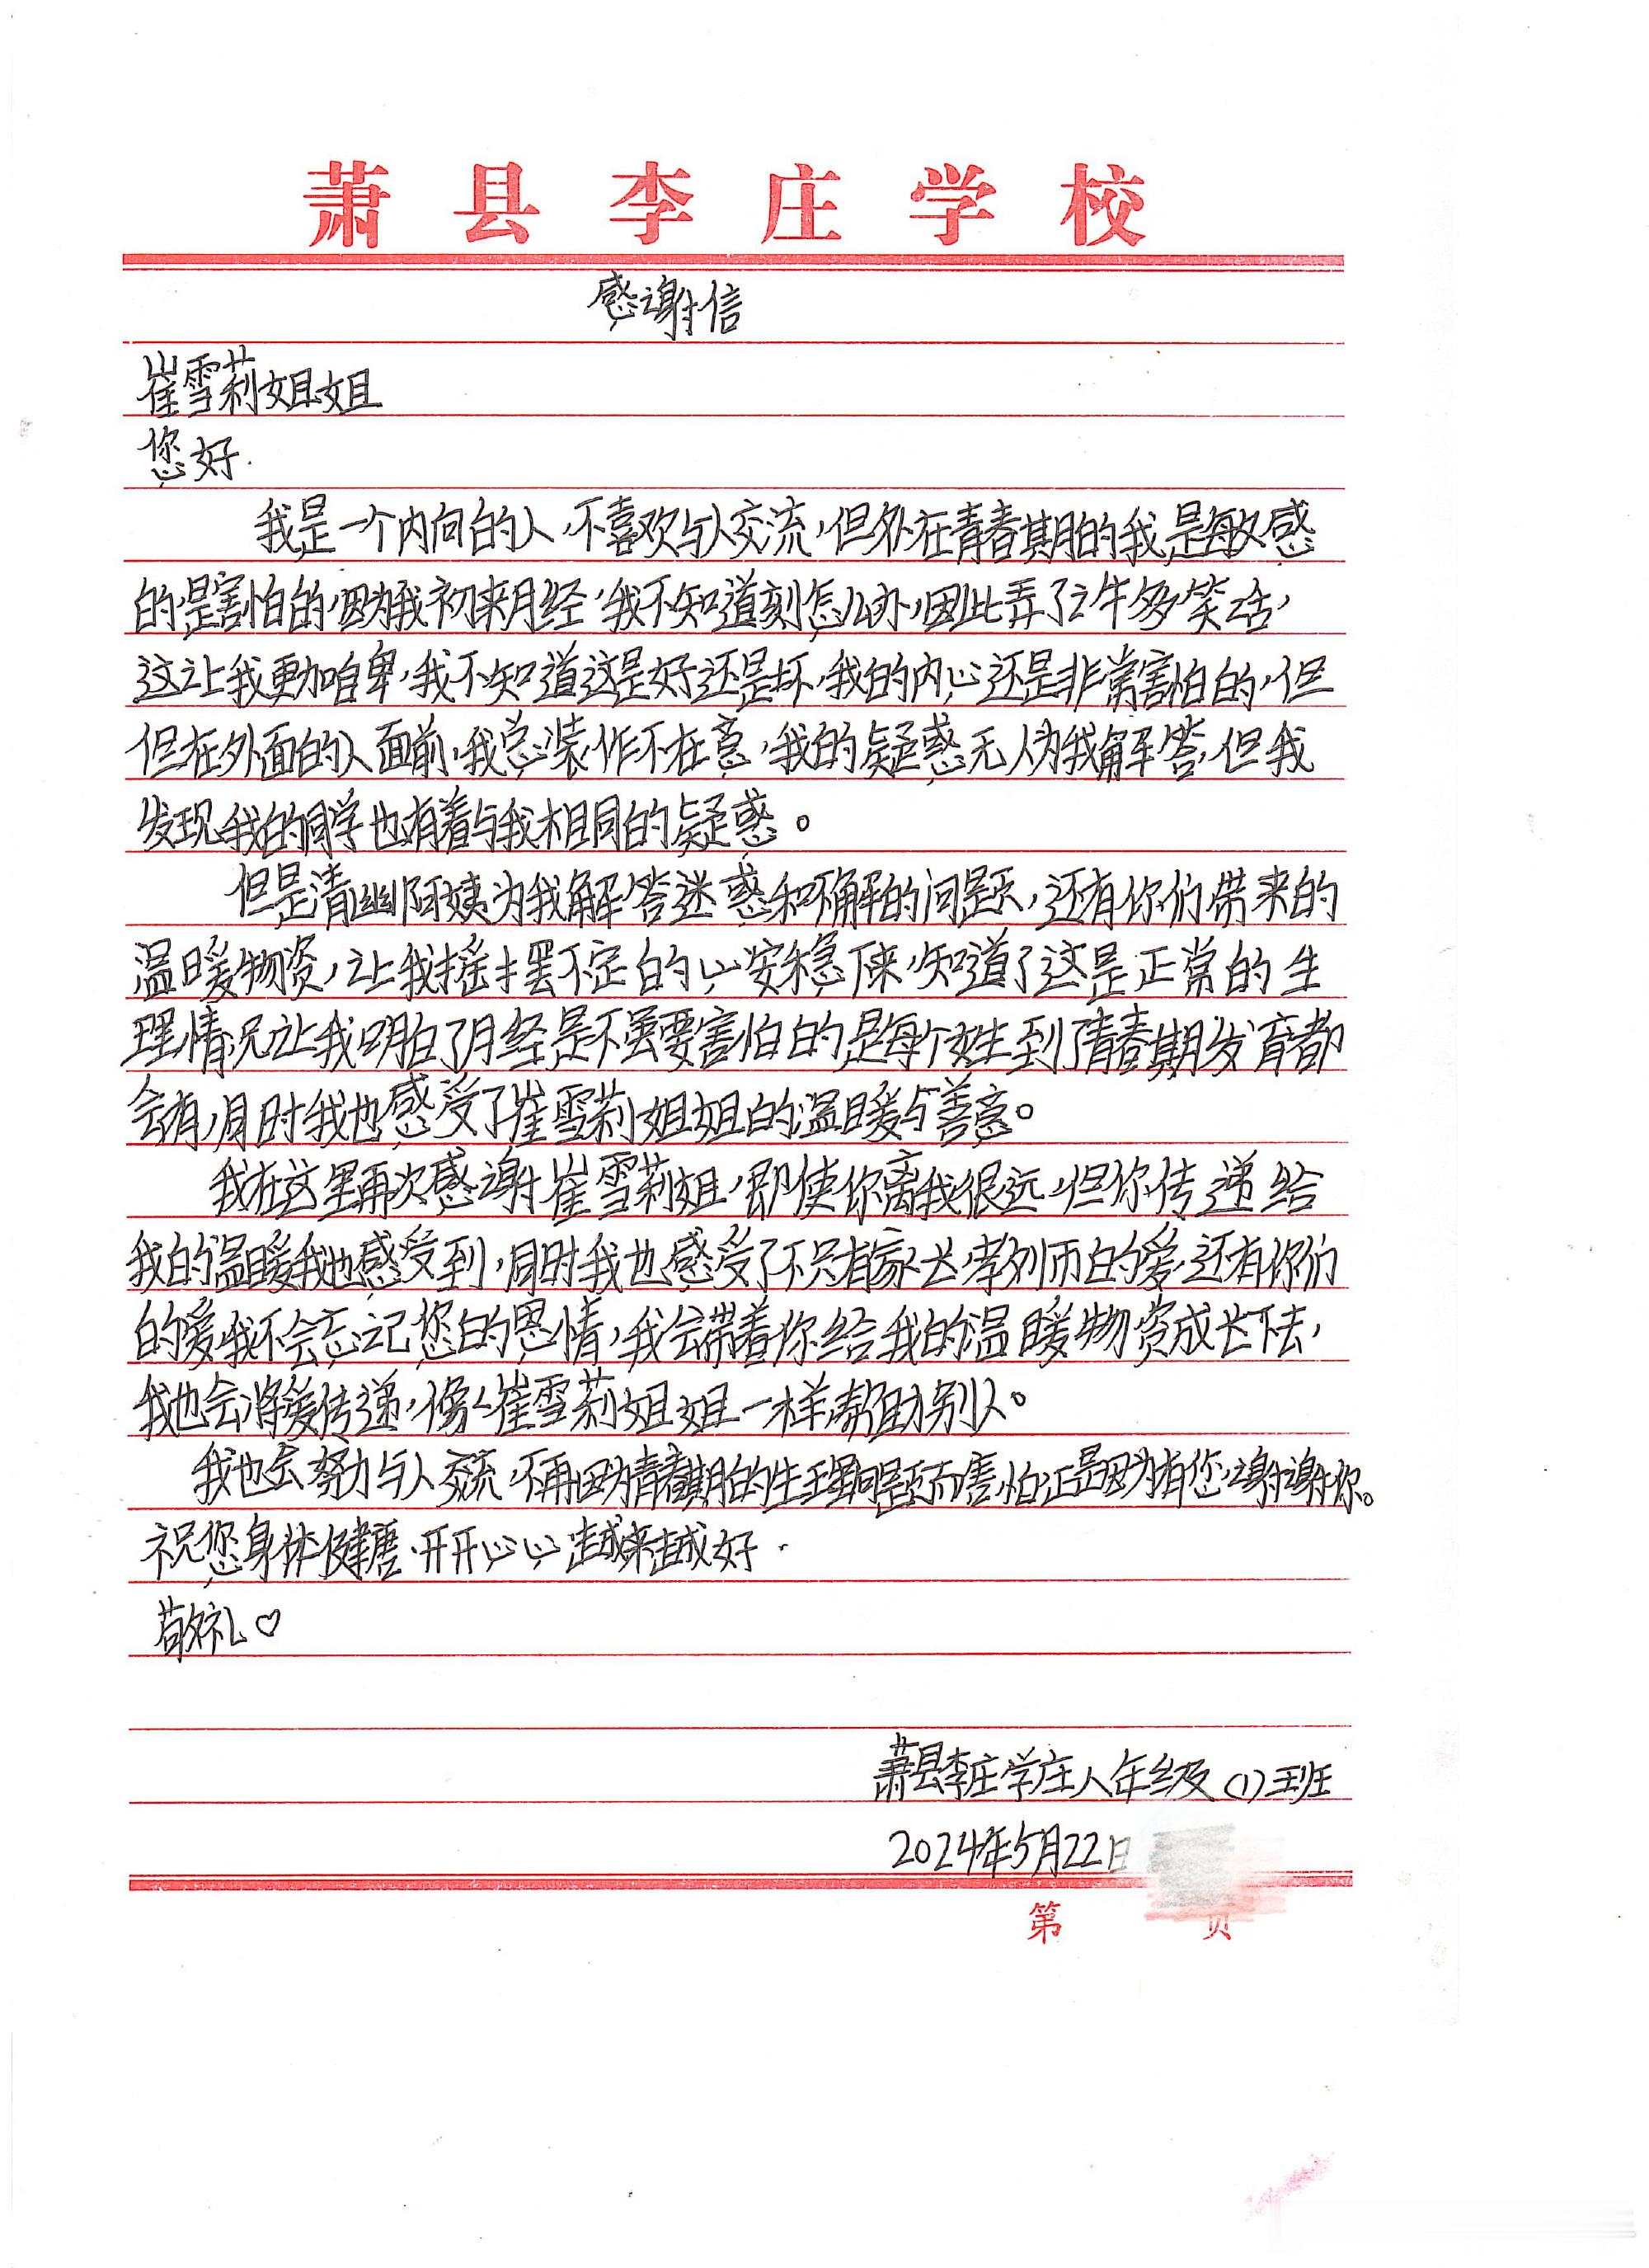 萧县李庄学校
感谢信
崔雪莉姐姐
您好.
我是一个内向的人,不喜欢与人交流,但处在青春期的我,是敏感
的,是害怕的,因为我初来月经,我不知道该怎么办,因此弄了许多笑话,
这让我更加自卑,我不知道这是好还是坏,我的内心还是非常害怕的,但
但在外面的人面前,我总装作不在意,我的疑惑无人为我解答,但我
发现我的同学也有着与我相同的疑惑。
但是清幽阿姨为我解答迷惑和不解的问题,还有你们带来的
温暖物资,让我摇摆不定的心安稳下来,知道了这是正常的生
理情况让我明白了月经是不需要害怕的是每个女生到了青春期发育都
会有,同时我也感受了崔雪莉姐姐的温暖与善意。
我在这里再次感谢崔雪莉姐,即使你离我很远,但你传递给
我的温暖我也感受到,同时我也感受了不只有家长,老师的爱,还有你们
的爱,我不会忘记您的恩情,我会带着你给我的温暖物资成长下去,
我也会将爱传递,像崔雪莉姐姐一样帮助别人。
我也会努力与人交流,不再因为青春期的生理问题而害怕,正是因为有您,谢谢你。
祝您身体健康.开开心心,越来越好.
敬礼♡
萧县李庄学庄八年级(1)班
2024年5月22日
第 页